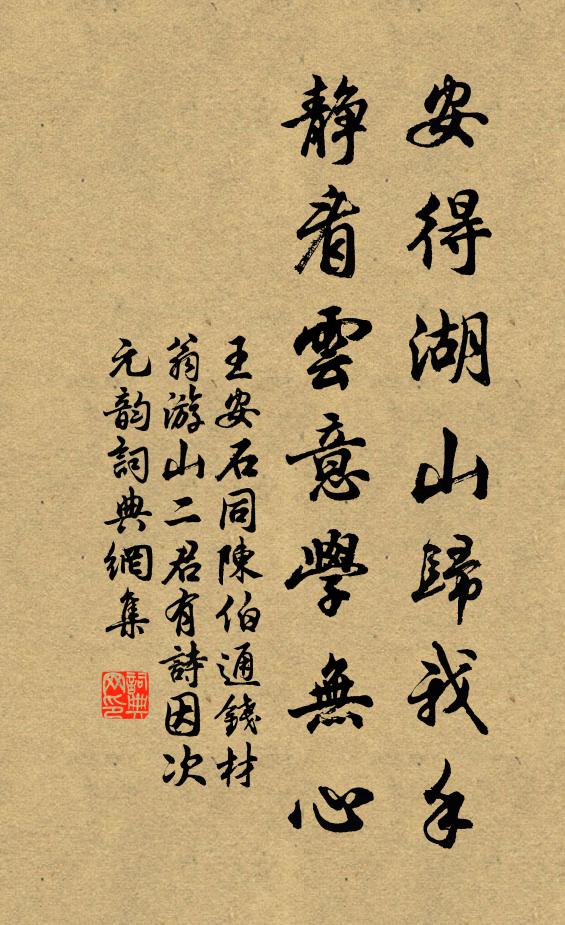 安得湖山歸我手
靜看雲意學無心
王安石同陳伯通錢材
翁游山二君有詩因次
元韵詞典網集
詞典
网印